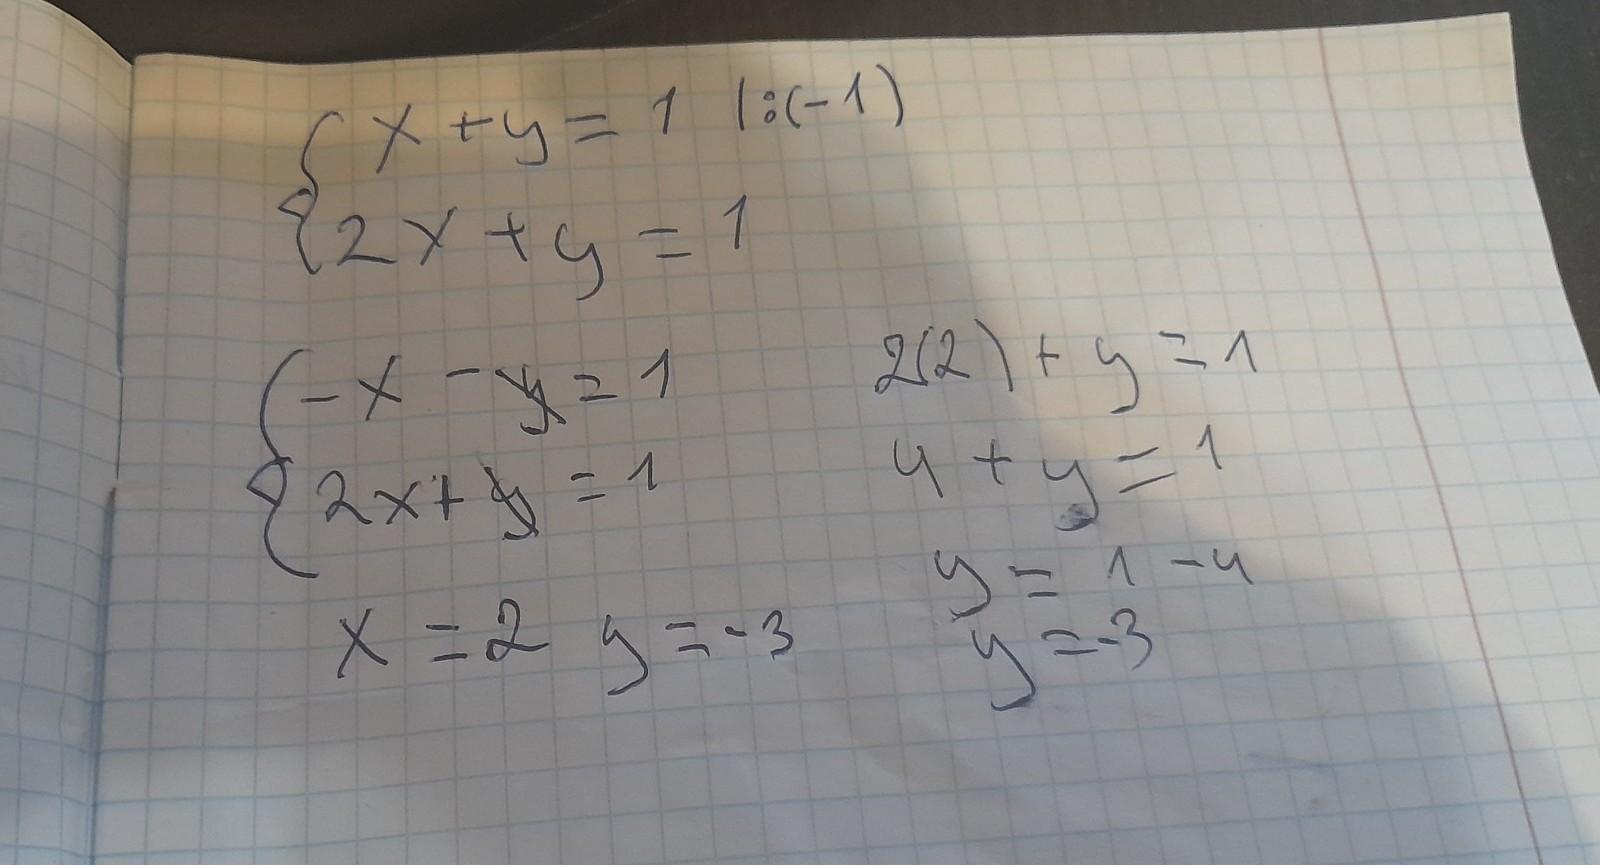 x + y = 1 |:(-1)
2x + y = 1
-x - y = 1
2x + y = 1
x = 2 y = -3
2(2) + y = 1
4 + y = 1
y = 1 - 4
y = -3